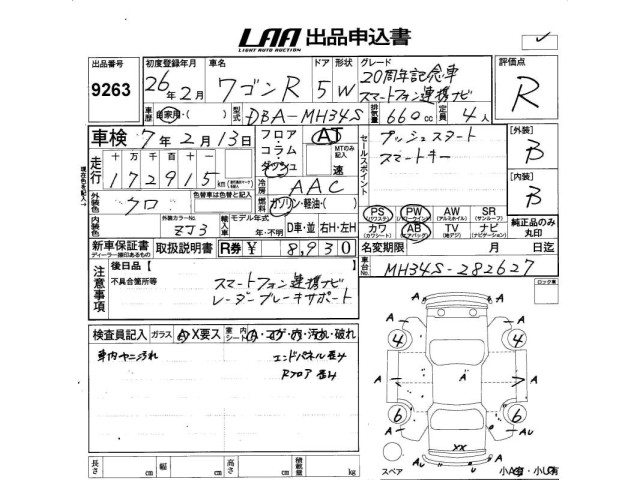 LAA 出品申込書
LIGHT AUTO AUCTION
出品番号 初度登録年月 車名 ドア 形状 グレード 評価点
9263 26年2月 ワゴンR 5 W 20周年記念車 R
スマートフォン連携ナビ
車歴 自家用・( ) 型式 DBA-MH34S 排気量 660cc 定員 4人
車検 7年2月13日 フロア・コラム・ダッシュ AT セールスポイント プッシュスタート [外装] B
MTのみ記入 速 スマートキー
走行 十万千百十 172915km 冷房 AAC [内装] B
現在色を記入 外装色 クロ 色替車は色替と記入 燃料 ガソリン・軽油・( )
PS (パワステ) PW (パワーウインド) AW (アルミホイル) SR (サンルーフ) 純正品のみ丸印
内装色 外装カラーNo. ZJ3 輸入車 モデル年式 年・不明 D車・並 右H・左H
カワ (カワシート) AB (エアバッグ) TV (地デジ) ナビ (ナビゲーション)
新車保証書 取扱説明書 R券 ¥ 8,930 名変期限 月 日迄
ディーラー捺印あるもの
注意事項 後日品【 】 車台No. MH34S-282627
不具合箇所等 スマートフォン連携ナビ
レーダーブレーキサポート
ロック車
検査員記入 ガラス A・X要ス 室内シート A・コゲ・穴・汚れ・破れ
車内ヤニ汚れ エンドパネル歪み
Rフロア 歪み
A A
4 4
A A A
6 6
A A
XX
AU AU
長さ cm 幅 cm 高さ cm 積載量 kg
スペア 小A有・小U有